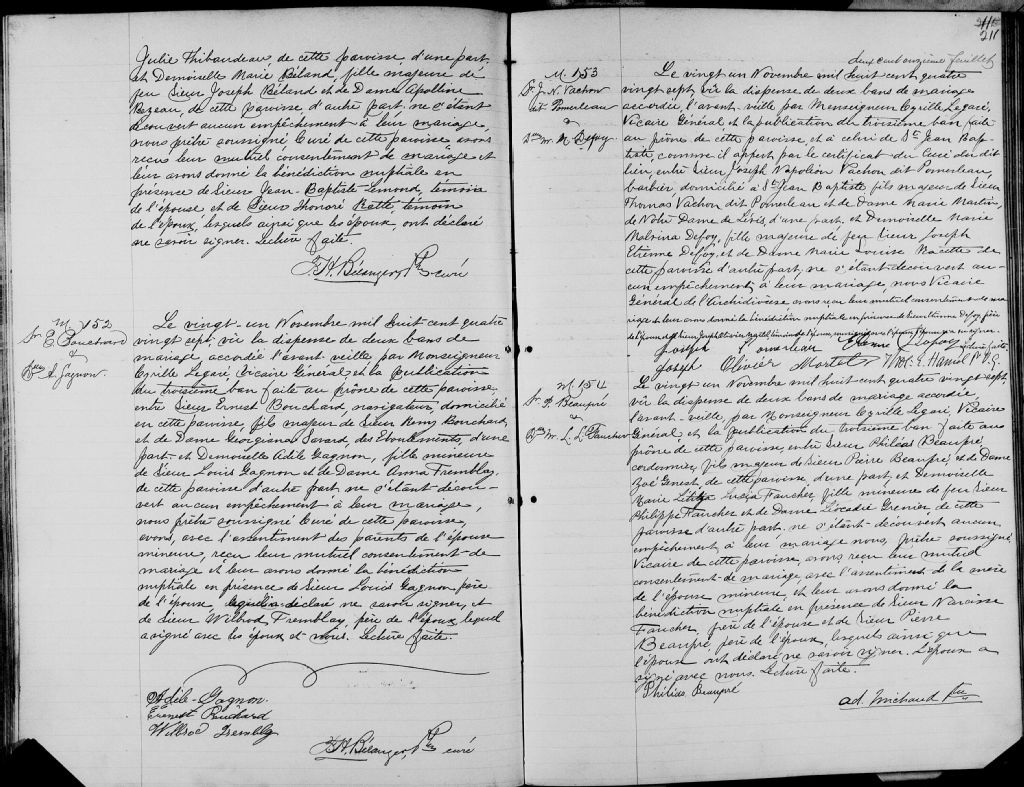 Julie Thibaudeau, de cette paroisse, d'une part,
et Demoiselle Marie Béland, fille majeure de
feu Sieur Joseph Béland et de Dame Apolline
Bezeau, de cette paroisse d'autre part, ne s'étant
découvert aucun empêchement à leur mariage,
nous prêtre soussigné Curé de cette paroisse, avons
reçus leur mutuel consentement de mariage et
leur avons donné la bénédiction nuptiale en
présence de Sieur Jean-Baptiste Lemond, témoin
de l'épouse et de Sieur Honoré Ratté, témoin
de l'époux, lesquels ainsi que les époux, ont déclaré
ne savoir signer. Lecture faite.
F.H. Bélanger, Ptre curé
M 152
Sr E. Bouchard
&
Dlle A. Gagnon.
Le vingt-un Novembre mil huit cent quatre
vingt sept, vû la dispense de deux bans de
mariage, accordée l'avant-veille par Monseigneur
Cyrille Legaré Vicaire Général et la publication
du troisième ban faite au prône de cette paroisse
entre Sieur Ernest Bouchard, navigateur, domicilié
en cette paroisse, fils majeur de Sieur Remy Bouchard
et de Dame Georgiana Savard, des Eboulements, d'une
part et Demoiselle Adèle Gagnon, fille mineure
de Sieur Louis Gagnon et de Dame Anna Tremblay,
de cette paroisse d'autre part, ne s'étant décou-
vert aucun empêchement à leur mariage,
nous prêtre soussigné Curé de cette paroisse,
avons, avec l'assentiment des parents de l'épouse
mineure, reçu leur mutuel consentement de
mariage et leur avons donné la bénédiction
nuptiale en présence de Sieur Louis Gagnon père
de l'époux, lequel a déclaré ne savoir signer, et
de Sieur Wilbrod Tremblay, père de l'époux, lequel
a signé avec les époux et nous. Lecture faite.
Adèle Gagnon
Ernest Bouchard
Wilbrod Trembly
F.H. Bélanger, Ptre curé
211
deux cent onzième feuillet
M. 153
Sr J. N. Vachon
dit Pomerleau
&
Dlle M. M. Defoy.
Le vingt un Novembre mil huit cent quatre
vingt sept, vû la dispense de deux bans de mariage
accordée, l'avant-veille par Monseigneur Cyrille Legaré,
Vicaire Général et la publication du troisième ban faite
au prône de cette paroisse et à celui de St Jean Bap-
tiste, comme il appert par le certificat du Curé du dit
lieu, entre Sieur Joseph Napoléon Vachon dit Pomerleau,
barbier domicilié à St Jean Baptiste fils majeur de Sieur
Thomas Vachon dit Pomerleau et de Dame Marie Martin,
de Notre Dame de Lévis, d'une part, et Demoiselle Marie
Malvina Defoy, fille majeure de feu Sieur Joseph
Etienne Defoy, et de Dame Marie Louise Racette de
cette paroisse d'autre part, ne s'étant découvert au-
cun empêchement à leur mariage, nous Vicaire
Général de l'Archidiocèse avons reçu leur mutuel consentement de ma-
riage et leur avons donné la bénédiction nuptiale en présence de Sieur Etienne Defoy frère
Joseph Pomerleau Etienne Defoy
Joseph Olivier Martel
E. Hamel P.V.G.
M 154
Sr P. Beaupré
&
Dlle M. L. L. Faucher
Le vingt un Novembre mil huit cent quatre vingt sept
vû la dispense de deux bans de mariage accordée
l'avant-veille, par Monseigneur Cyrille Legaré, Vicaire
Général, et la publication du troisième ban faite au
prône de cette paroisse, entre Sieur Philéas Beaupré,
cordonnier, fils majeur de Sieur Pierre Beaupré, et de Dame
Zoé Genest, de cette paroisse, d'une part, et Demoiselle
Marie Luzia Faucher, fille mineure de feu Sieur
Philippe Faucher et de Dame Léocadie Grenier, de cette
paroisse d'autre part, ne s'étant découvert aucun
empêchement, à leur mariage nous, prêtre soussigné
Vicaire de cette paroisse, avons reçu leur mutuel
consentement de mariage, avec l'assentiment de la mère
de l'épouse mineure, et leur avons donné la
bénédiction nuptiale en présence de Sieur Narcisse
Faucher, frère de l'épouse et de Sieur Pierre
Beaupré, père de l'époux, lesquels ainsi que
l'épouse ont déclaré ne savoir signer. L'époux a
signé avec nous. Lecture faite.
Philéas Beaupré
Ad. Michaud Ptre